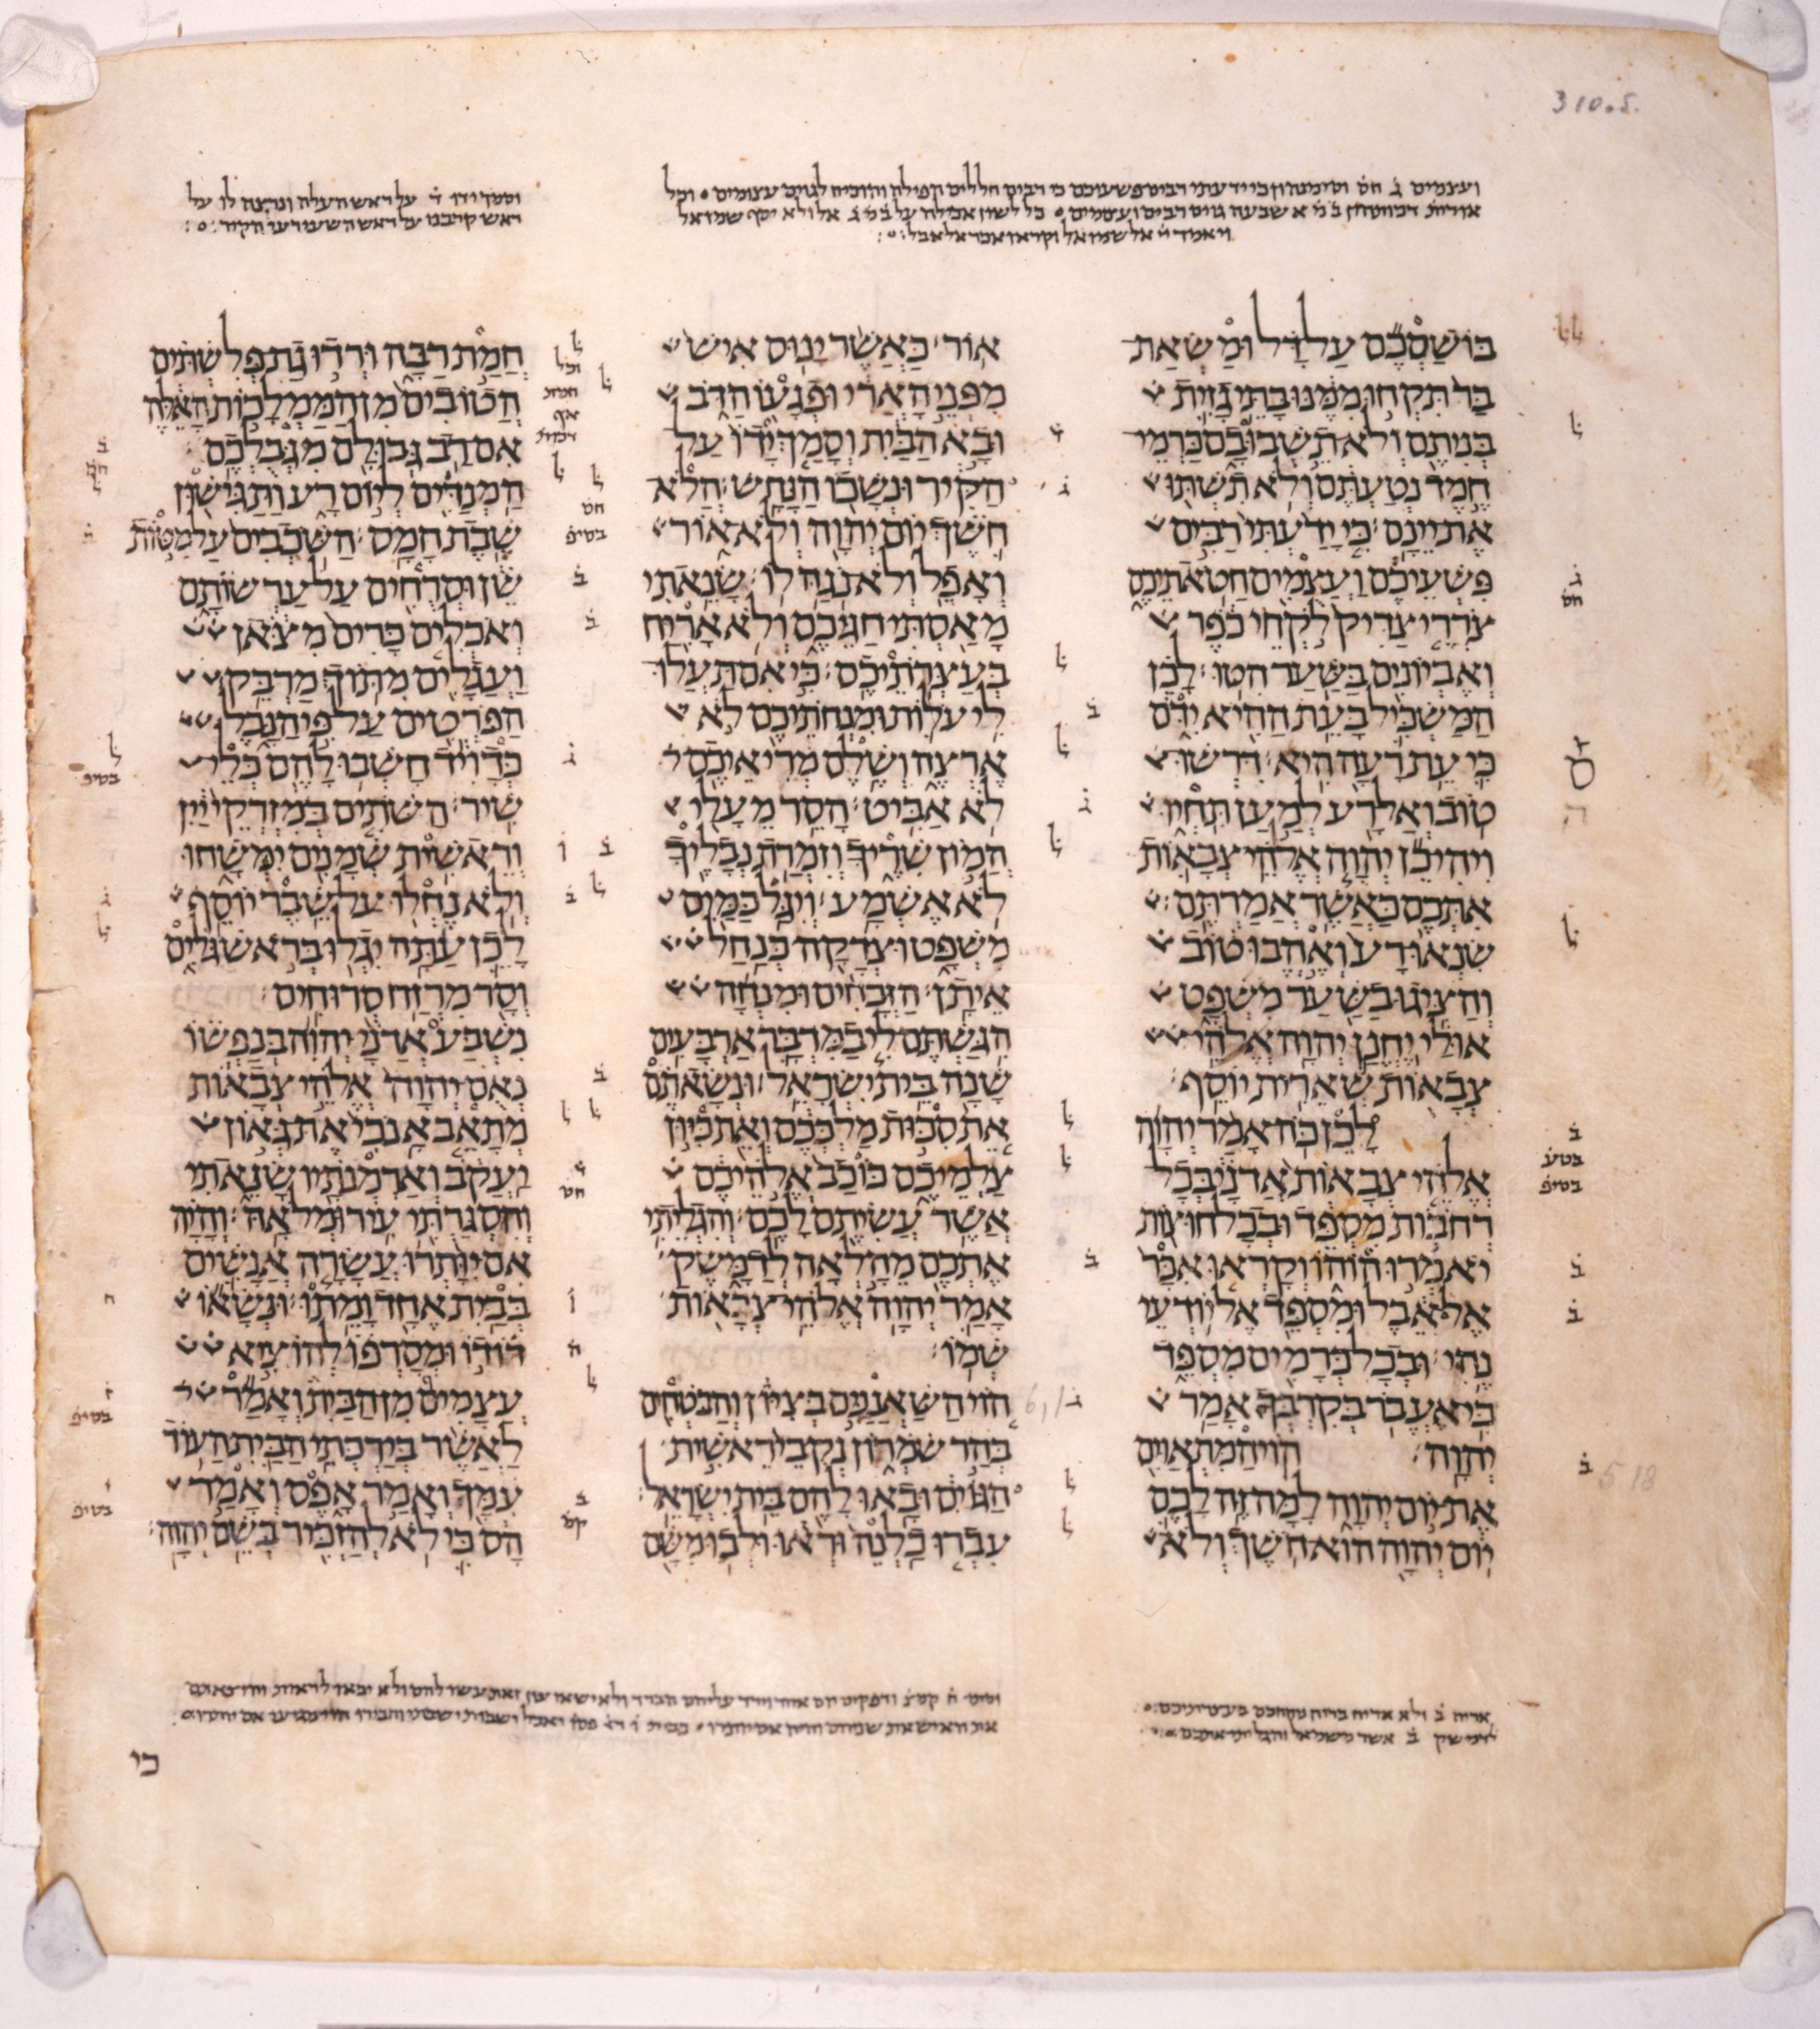 310.5.
ועצמים ג חס וסימנהון כי ידעתי רבים פשעיכם כי רבים חללים הפילה והוכיח לגוים עצומים וכל
אורית דכותהון במא שבעה גוים רבים ועצמים כל לשון אכילה על במג אל ולא יסף שמואל
ויאמר יי אל שמואל וקראו אכר אל אבל
וסמך ידו ד על ראש העלה ונרצה לו על
ראש קרבנו על ראש השעיר ועל הקיר
בושסכם על דל ומשאת
בר תקחו ממנו בתי גזית
בניתם ולא תשבו בם כרמי
חמד נטעתם ולא תשתו
את יינם כי ידעתי רבים
פשעיכם ועצמים חטאתיכם
צררי צדיק לקחי כפר
ואביונים בשער הטו לכן
המשכיל בעת ההיא ידם
כי עת רעה היא דרשו
טוב ואל רע למען תחיו
ויהי כן יהוה אלהי צבאות
אתכם כאשר אמרתם
שנאו רע ואהבו טוב
והציגו בשער משפט
אולי יחנן יהוה אלהי
צבאות שארית יוסף
לכן כה אמר יהוה
אלהי צבאות אדני בכל
רחבות מספד ובכל חוצות
יאמרו הו הו וקראו אכר
אל אבל ומספד אל יודעי
נהי ובכל כרמים מספד
כי אעבר בקרבך אמר
יהוה הוי המתאוים
את יום יהוה למה זה לכם
יום יהוה הוא חשך ולא
אור כאשר ינוס איש
מפני הארי ופגעו הדב
ובא הבית וסמך ידו על
הקיר ונשכו הנחש הלא
חשך יום יהוה ולא אור
ואפל ולא נגה לו שנאתי
מאסתי חגיכם ולא אריח
בעצרתיכם כי אם תעלו
לי עלות ומנחתיכם לא
ארצה ושלם מריאיכם
לא אביט הסר מעלי
המון שריך וזמרת נבליך
לא אשמע ויגל כמים
משפט וצדקה כנחל
איתן הזבחים ומנחה
הגשתם לי במדבר ארבעים
שנה בית ישראל ונשאתם
את סכות מלככם ואת כיון
צלמיכם כוכב אלהיכם
אשר עשיתם לכם והגליתי
אתכם מהלאה לדמשק
אמר יהוה אלהי צבאות
שמו
הוי השאננים בציון והבטחים
בהר שמרון נקבי ראשית
הגוים ובאו להם בית ישראל
עברו כלנה וראו ולכו משם
חמת רבה ורדו גת פלשתים
הטובים מן הממלכות האלה
אם רב גבולם מגבלכם
המנדים ליום רע ותגישון
שבת חמס השכבים על מטות
שן וסרחים על ערשותם
ואכלים כרים מצאן
ועגלים מתוך מרבק
הפרטים על פי הנבל
כדויד חשבו להם כלי
שיר השתים במזרקי יין
וראשית שמנים ימשחו
ולא נחלו על שבר יוסף
לכן עתה יגלו בראש גלים
וסר מרזח סרוחים
נשבע אדני יהוה בנפשו
נאם יהוה אלהי צבאות
מתאב אנכי את גאון
יעקב וארמנתיו שנאתי
והסגרתי עיר ומלאה והיה
אם יותרו עשרה אנשים
בבית אחד ומתו ונשאו
דודו ומסרפו להוציא
עצמים מן הבית ואמר
לאשר בירכתי הבית העוד
עמך ואמר אפס ואמר
הס כי לא להזכיר בשם יהוה
אריח ב ולא אריח בריח ניחחכם בעצרתיכם
לדמשק ב אשר משמאל והגליתי אתכם
כי